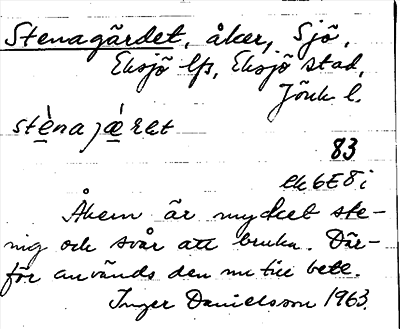 Stenagärdet, åker, Sjö,
Eksjö lfs, Eksjö stad,
Jönk l.
stènajǽrdet
83
ek 6E8i
Åkern är mycket ste-
nig och svår att bruka. Där-
för används den nu till bete.
Inger Danielsson 1963.